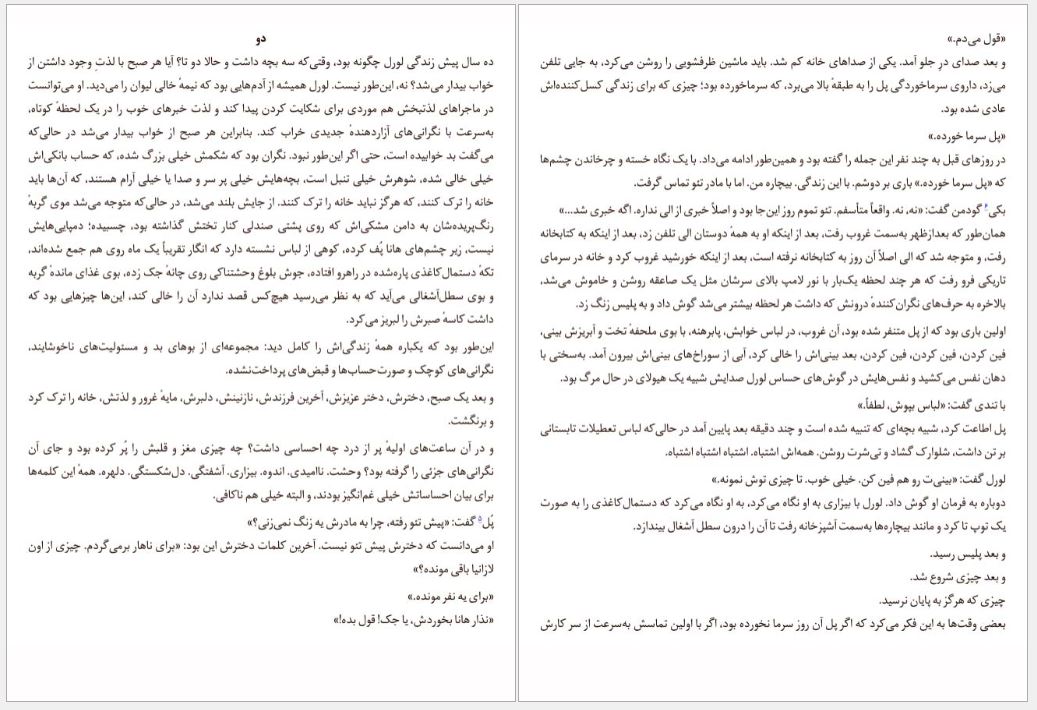 دو
ده سال پیش زندگی لورل چگونه بود، وقتی‌که سه بچه داشت و حالا دو تا؟ آیا هر صبح با لذتِ وجود داشتن از
خواب بیدار می‌شد؟ نه، این‌طور نیست. لورل همیشه از آدم‌هایی بود که نیمهٔ خالی لیوان را می‌دید. او می‌توانست
در ماجراهای لذتبخش هم موردی برای شکایت کردن پیدا کند و لذت خبرهای خوب را در یک لحظهٔ کوتاه،
به‌سرعت با نگرانی‌های آزاردهندهٔ جدیدی خراب کند. بنابراین هر صبح از خواب بیدار می‌شد در حالی‌که
می‌گفت بد خوابیده است، حتی اگر این‌طور نبود. نگران بود که شکمش خیلی بزرگ شده، که حساب بانکی‌اش
خیلی خالی شده، شوهرش خیلی تنبل است، بچه‌هایش خیلی پر سر و صدا یا خیلی آرام هستند، که آن‌ها باید
خانه را ترک کنند، که هرگز نباید خانه را ترک کنند. از جایش بلند می‌شد، در حالی‌که متوجه می‌شد موی گربهٔ
رنگ‌پریده‌شان به دامن مشکی‌اش که روی پشتی صندلی کنار تختش گذاشته بود، چسبیده؛ دمپایی‌هایش
نیست، زیر چشم‌های هانا پُف کرده، کوهی از لباس نشسته دارد که انگار تقریباً یک ماه روی هم جمع شده‌اند،
تکهٔ دستمال‌کاغذی پاره‌شده در راهرو افتاده، جوش بلوغ وحشتناکی روی چانهٔ جک زده، بوی غذای ماندهٔ گربه
و بوی سطل‌آشغالی می‌آید که به نظر می‌رسید هیچ‌کس قصد ندارد آن را خالی کند، این‌ها چیزهایی بود که
داشت کاسهٔ صبرش را لبریز می‌کرد.
این‌طور بود که یکباره همهٔ زندگی‌اش را کامل دید: مجموعه‌ای از بوهای بد و مسئولیت‌های ناخوشایند،
نگرانی‌های کوچک و صورت‌حساب‌ها و قبض‌های پرداخت‌نشده.
و بعد یک صبح، دخترش، دختر عزیزش، آخرین فرزندش، نازنینش، دلبرش، مایهٔ غرور و لذتش، خانه را ترک کرد
و برنگشت.
و در آن ساعت‌های اولیهٔ پر از درد چه احساسی داشت؟ چه چیزی مغز و قلبش را پُر کرده بود و جای آن
نگرانی‌های جزئی را گرفته بود؟ وحشت. ناامیدی. اندوه. بیزاری. آشفتگی. دل‌شکستگی. دلهره. همهٔ این کلمه‌ها
برای بیان احساساتش خیلی غم‌انگیز بودند، و البته خیلی هم ناکافی.
پُل⁵ گفت: «پیش تئو رفته، چرا به مادرش یه زنگ نمی‌زنی؟»
او می‌دانست که دخترش پیش تئو نیست. آخرین کلمات دخترش این بود: «برای ناهار برمی‌گردم. چیزی از اون
لازانیا باقی مونده؟»
«برای یه نفر مونده.»
«نذار هانا بخوردش، یا جک! قول بده!»
«قول می‌دم.»
و بعد صدای درِ جلو آمد. یکی از صداهای خانه کم شد. باید ماشین ظرفشویی را روشن می‌کرد، به جایی تلفن
می‌زد، داروی سرماخوردگی پل را به طبقهٔ بالا می‌برد، که سرماخورده بود؛ چیزی که برای زندگی کسل‌کننده‌اش
عادی شده بود.
«پل سرما خورده.»
در روزهای قبل به چند نفر این جمله را گفته بود و همین‌طور ادامه می‌داد. با یک نگاه خسته و چرخاندن چشم‌ها
که «پل سرما خورده.» باری بر دوشم. با این زندگی. بیچاره من. اما با مادر تئو تماس گرفت.
بکی⁶ گودمن گفت: «نه، نه. واقعاً متأسفم. تئو تموم روز این‌جا بود و اصلاً خبری از الی نداره. اگه خبری شد...»
همان‌طور که بعدازظهر به‌سمت غروب رفت، بعد از اینکه او به همهٔ دوستان الی تلفن زد، بعد از اینکه به کتابخانه
رفت، و متوجه شد که الی اصلاً آن روز به کتابخانه نرفته است، بعد از اینکه خورشید غروب کرد و خانه در سرمای
تاریکی فرو رفت که هر چند لحظه یک‌بار با نور لامپ بالای سرشان مثل یک صاعقه روشن و خاموش می‌شد،
بالاخره به حرف‌های نگران‌کنندهٔ درونش که داشت هر لحظه بیشتر می‌شد گوش داد و به پلیس زنگ زد.
اولین باری بود که از پل متنفر شده بود، آن غروب، در لباس خوابش، پابرهنه، با بوی ملحفهٔ تخت و آبریزش بینی،
فین کردن، فین کردن، فین کردن، بعد بینی‌اش را خالی کرد، آبی از سوراخ‌های بینی‌اش بیرون آمد. به‌سختی با
دهان نفس می‌کشید و نفس‌هایش در گوش‌های حساس لورل صدایش شبیه یک هیولای در حال مرگ بود.
با تندی گفت: «لباس بپوش، لطفاً.»
پل اطاعت کرد، شبیه بچه‌ای که تنبیه شده است و چند دقیقه بعد پایین آمد در حالی‌که لباس تعطیلات تابستانی
بر تن داشت، شلوارک گشاد و تی‌شرت روشن. همه‌اش اشتباه. اشتباه اشتباه اشتباه.
لورل گفت: «بینی‌ت رو هم فین کن. خیلی خوب. تا چیزی توش نمونه.»
دوباره به فرمان او گوش داد. لورل با بیزاری به او نگاه می‌کرد، به او نگاه می‌کرد که دستمال‌کاغذی را به صورت
یک توپ تا کرد و مانند بیچاره‌ها به‌سمت آشپزخانه رفت تا آن را درون سطل آشغال بیندازد.
و بعد پلیس رسید.
و بعد چیزی شروع شد.
چیزی که هرگز به پایان نرسید.
بعضی وقت‌ها به این فکر می‌کرد که اگر پل آن روز سرما نخورده بود، اگر با اولین تماسش به‌سرعت از سر کارش